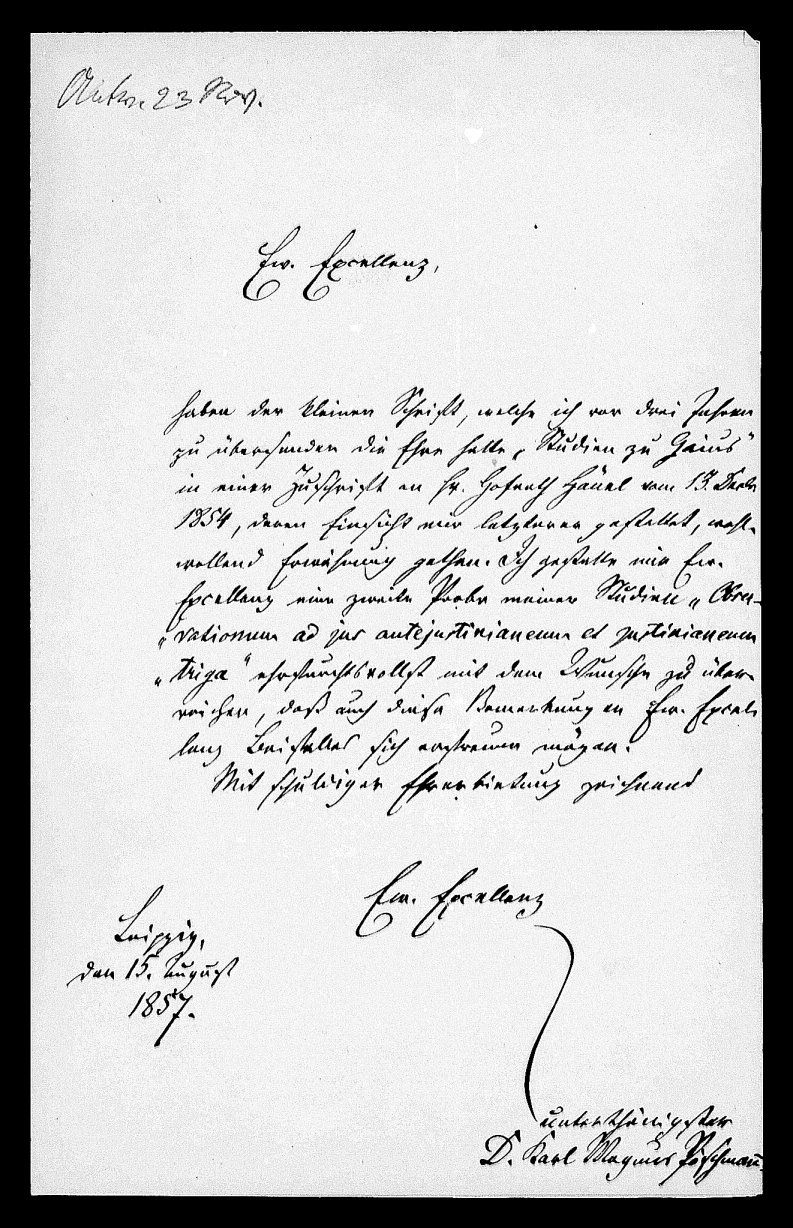 Antw. 23 Nov.
Ew. Excellenz,
haben der kleinen Schrift, welche ich vor drei Jahren
zu übersenden die Ehre hatte, „Studien zu Gaius“
in einer Zuschrift an Hr. Hofrath Hänel vom 13. Decbr
1854, deren Einsicht mir letzterer gestattet, wohl-
wollend Erwähnung gethan. Ich gestatte mir Ew.
Excellenz eine zweite Probe meiner Studien „Obser-
„vationum ad jus antejustinianeum et justinianeum
„triga“ ehrfurchtsvollst mit dem Wunsche zu über-
reichen, daß auch diese Bemerkungen Ew. Excel-
lenz Beifalles sich erfreuen mögen.
Mit schuldiger Ehrerbietung zeichnend
Ew. Excellenz
Leipzig,
den 15. August
1857.
unterthänigster
D. Karl Magnus Pöschmann.